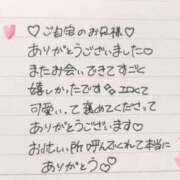 ♡ ご自宅のお兄様♡
ありがとうございました♡
またお会いできてすごく
嬉しかったです♡エロくて
可愛いって褒めてくださって
ありがとうございます♡
お忙しい所呼んでくれて本当に
ありがとう♡